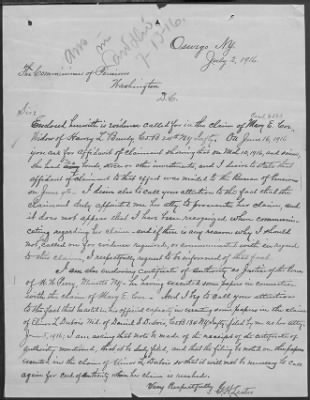 Ans in
Card file
7-13-16.
Oswego N.Y.
July 3, 1916
The Commissioner of Pensions
Washington
D.C.
Sir:
Enclosed herewith is evidence called for in the claim of Mary E. Cox,
Widow of Harvey L. Bundy, Co B 24th NY Infty. On June 16, 1916
you ask for affidavit of claimant showing that on Mch 10, 1916, and since,
she had no bonds, stocks or other investments, and I desire to state that
affidavit of claimant to that effect was mailed to the Bureau of Pensions
on June. I desire also to call your attention to the fact that the
claimant duly appointed me her atty to prosecute her claim, and
it does not appear that I have been recognized when communi-
cating regarding her claim and if there is any reason why I should
not, called on for evidence required, or communicated with in regard
to this claim, I respectfully request to be informed of that fact.
I am also enclosing certificate of authority as Justice of the Peace
of M. H. Perry, Minetto NY - he having executed some papers in connection
with the claim of Mary E. Cox - And I beg to call your attention
to the fact that he acted in his official capacity in executing some papers in the claim
of Elmina L. Dubois Wid. of Daniel F. Dubois, Co B 184 NY Infty, filed by me as her atty,
June 5, 1916; I am asking that note be made of the receipt of the certificate of
authority mentioned, that it be duly filed, and that the filing be noted on the papers
executed in the claim of Elmina L. Dubois so that it will not be necessary to call
again for cert of authority when her claim is reached.
Very Respectfully